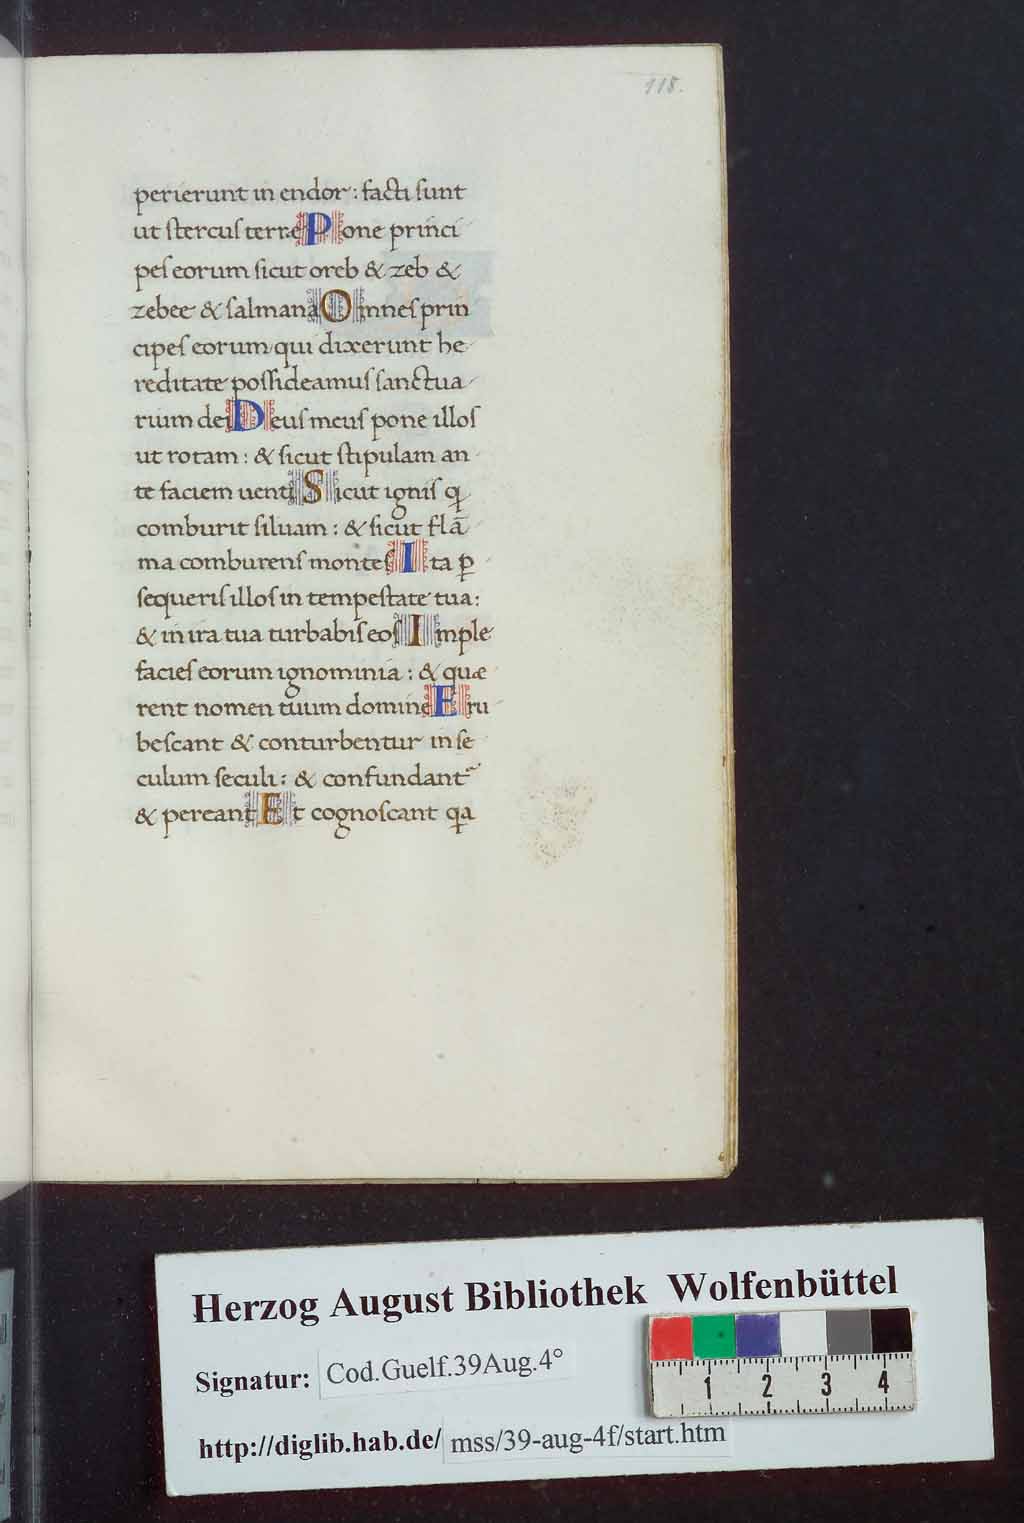 118.
perierunt in endor : facti sunt
ut stercus terre Pone princi
pes eorum sicut oreb & zeb &
zebee & salmana Omnes prin
cipes eorum qui dixerunt he
reditate possideamus sanctua
rium dei Deus meus pone illos
ut rotam : & sicut stipulam an
te faciem uenti Sicut ignis q
comburit siluam : & sicut flā
ma comburens montes Ita ꝑ
sequeris illos in tempestate tua :
& in ira tua turbabis eos Imple
facies eorum ignominia : & quæ
rent nomen tuum domine Eru
bescant & conturbentur in se
culum seculi : & confundant᷑
& pereant Et cognoscant qa
Herzog August Bibliothek Wolfenbüttel
Signatur: Cod.Guelf.39Aug.4°
http://diglib.hab.de/ mss/39-aug-4f/start.htm
1 2 3 4